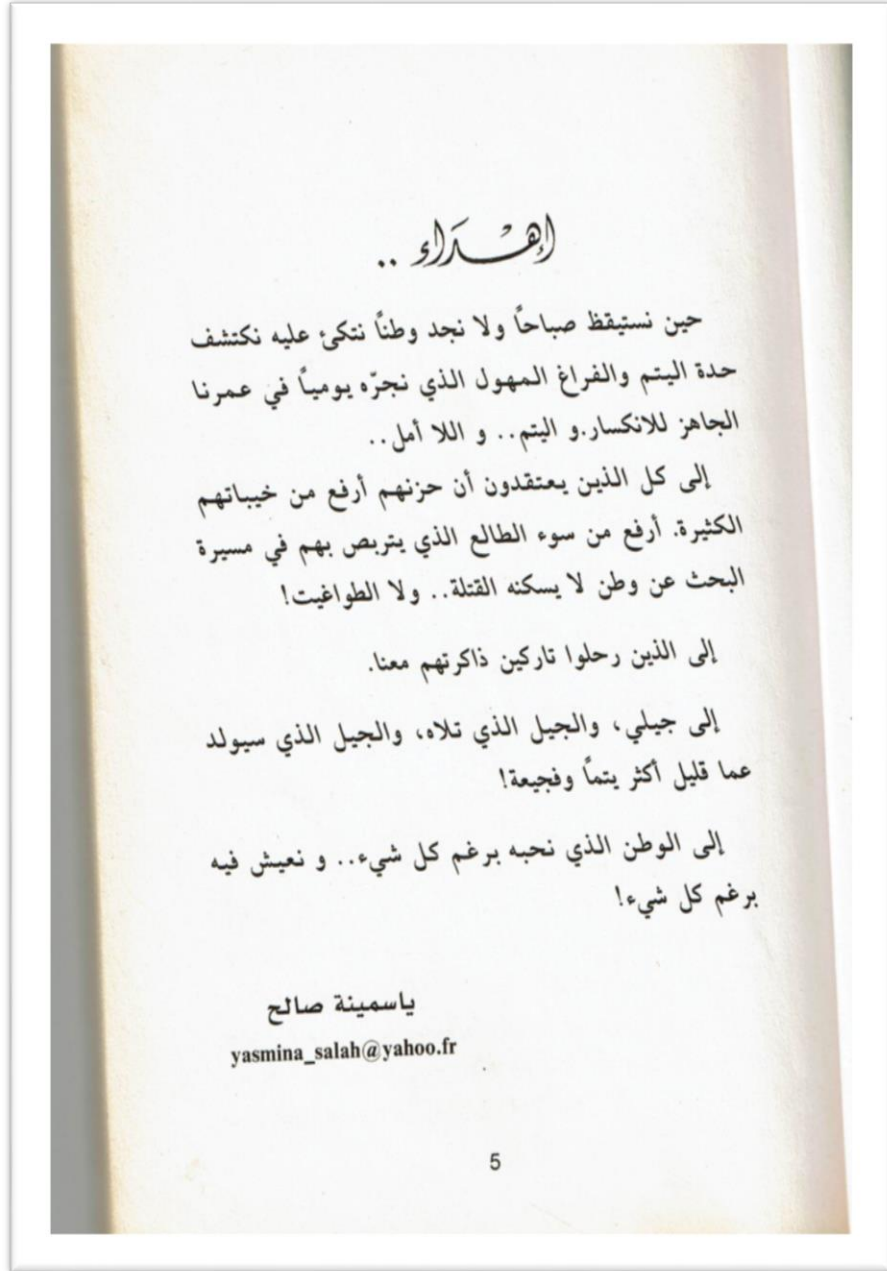 إهْدَاء ..
حين نستيقظ صباحاً ولا نجد وطناً نتكئ عليه نكتشف
حدة اليتم والفراغ المهول الذي نجرّه يومياً في عمرنا
الجاهز للانكسار.و اليتم.. و اللا أمل..
إلى كل الذين يعتقدون أن حزنهم أرفع من خيباتهم
الكثيرة. أرفع من سوء الطالع الذي يتربص بهم في مسيرة
البحث عن وطن لا يسكنه القتلة.. ولا الطواغيت!
إلى الذين رحلوا تاركين ذاكرتهم معنا.
إلى جيلي، والجيل الذي تلاه، والجيل الذي سيولد
عما قليل أكثر يتماً وفجيعة!
إلى الوطن الذي نحبه برغم كل شيء.. و نعيش فيه
برغم كل شيء!
ياسمينة صالح
yasmina_salah@yahoo.fr
5